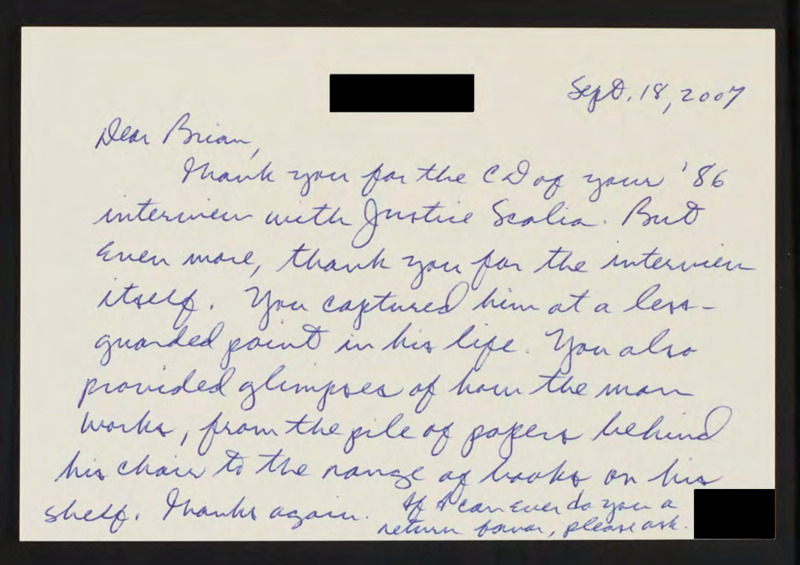 Sept. 18, 2007
Dear Brian,
Thank you for the CD of your '86
interview with Justice Scalia. But
even more, thank you for the interview
itself. You captured him at a less-
guarded point in his life. You also
provided glimpses of how the man
works, from the pile of papers behind
his chair to the range of books on his
shelf. Thanks again. If I can ever do you a
return favor, please ask.